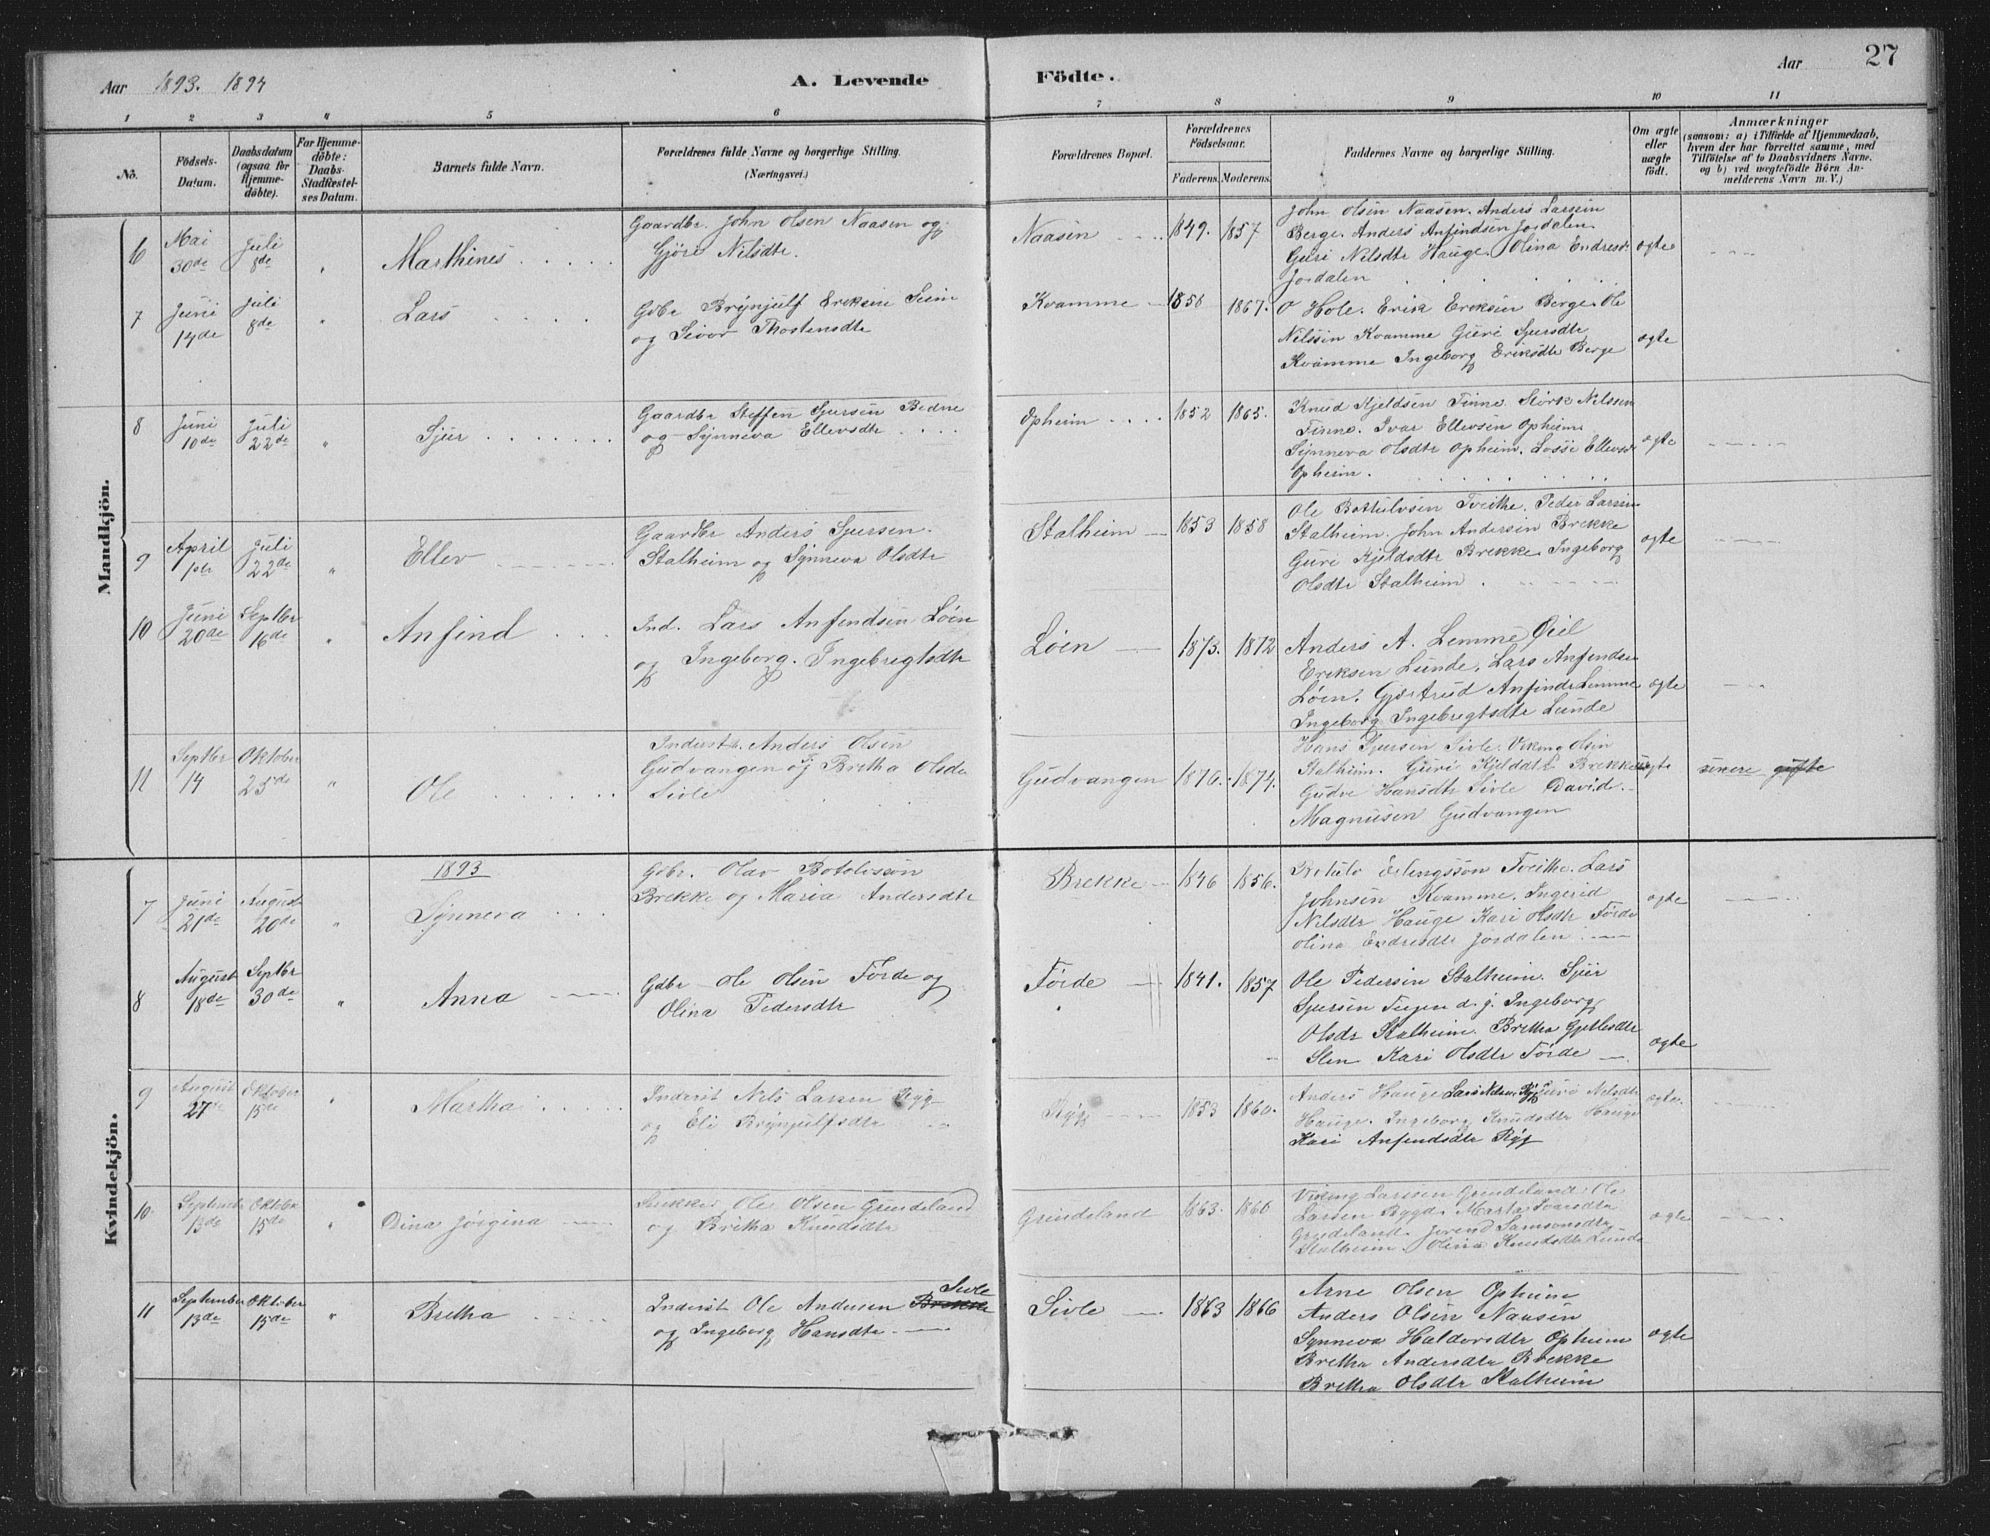 Aar 1893. 1894
A. Levende
Födte.
Aar 27
1 2 3 4 5 6 7 8 9 10 11
No.
Födsels-Datum.
Daabsdatum (ogsaa for Hjemme-döbte).
For Hjemme-döbte: Daabs-Stadfæstel-ses Datum.
Barnets fulde Navn.
Forældrenes fulde Navne og borgerlige Stilling.
(Næringsvei.)
Forældrenes Bopæl.
Forældrenes Födselsaar.
Faderens. Moderens.
Faddernes Navne og borgerlige Stilling.
Om ægte eller uægte födt.
Anmærkninger
(saasom: a) i Tilfælde af Hjemmedaab,
hvem der har forrettet samme, med
Tilföielse af to Daabsvidners Navne.
og b) ved uægtefödte Börn An-
melderens Navn m. V.)
Mandkjön.
6 Mai 30de Juli 8de " Marthines
Gaardbr. John Olsen Naasen og
Gjöri Nilsdtr.
Naasen 1849. 1857
John Olsen Naasen. Anders Larsen
Berge. Anders Anfindsen Jordalen
Guri Nilsdtr Hauge. Olina Endresdr
Jordalen
ægte
7 Juni 14de Juli 8de " Lars
Gdbr Brynjulf Eriksen Seim
og Sivor Thostensdtr
Kvamme 1856 1867.
O Hole. Erik Eriksen Berge. Ole
Nilssen Kvamme Guri Sjursdtr
Kvamme Ingeborg Eriksdtr Berge
ægte
8 Juni 10de Juli 22de " Sjur
Gaardbr Steffen Sjursen Bedne
og Synneva Ellevsdtr
Opheim 1852 1865.
Knud Kjeldsen Finne. Störk Nilssen
Finne. Ivar Ellevsen Opheim
Synneva Olsdtr Opheim. Lossi Ellevsdr
Opheim.
ægte
9 April 1ste Juli 22de " Ellev
Gaardbr Anders Sjursen
Stalheim og Synneva Olsdtr
Stalheim 1853 1858
Ole Bottulvsen Tveithe. Peder Larsen
Stalheim. John Andersen Brekke
Guri Kjeldsdtr Brekke Ingeborg
Olsdtr Stalheim
ægte
10 Juni 20de Septbr 16de " Anfind
Ind. Lars Anfindsen Löen
og Ingeborg Ingebregtsdtr
Löen 1873. 1872
Anders A. Lemme
Eriksen Lunde. Lars Anfindsen
Löen. Gjertrud Anfindsdr Lemme
Ingeborg Ingebregtsdtr Lunde
ægte
11 Septbr 14 Oktober 25de " Ole
Inderst. Anders Olsen
Gudvangen og Bretha Olsdr
Sivle
Gudvangen 1870. 1874.
Hans Sjursen Sivle. Viking Olsen
Stalheim. Guri Kjeldsdtr Brekke
Gudve Hansdtr Sivle David
Magnusen Gudvangen
uægte senere gifte
Kvindekjön.
1893
7 Juni 21de August 20de " Synneva
Gdbr. Olav Botolvsson
Brekke og Maria Andersdtr
Brekke 1846 1856.
Botulv Erlingsson Tveithe. Lars
Johnsen Kvamme. Ingerid
Nilsdtr Hauge Kari Olsdtr Förde
Olina Endresdtr Jordalen
ægte
8 August 18de Septbr 30de " Anna
Gdbr Ole Olsen Förde og
Olina Pedersdtr
Förde 1841. 1857
Ole Pedersen Stalheim. Sjur
Sjursen d. y. Ingeborg
Olsdr Stalheim. Bretha Gjetlesdtr
Slen Kari Olsdtr Förde
ægte
9 August 27de Oktober 15de " Martha
Inderst Nils Larsen Ryg
og Eli Brynjulfsdtr
Ryg 1853 1860.
Anders Hauge Lars Nilsen Ryg Guri Nilsdtr
Hauge. Ingeborg Knudsdtr Hauge
Kari Anfindsdtr Ryg
ægte
10 September 13de Oktober 15de " Dina Jörgina
Ole Olsen Grindeland
og Bretha Knudsdtr
Grindeland 1863. 1860
Viking Larsen Grindeland Ole
Larsen Bygd. Marta Ivarsdtr
Grindeland. Samsonsdtr
Stalheim. Olina Knudsdtr Lunde
ægte
11 September 13de Oktober 15de " Bretha
Inderst Ole Andersen Brekke Sivle
og Ingeborg Hansdtr
Sivle 1863 1866
Arne Olsen Opheim
Anders Olsen Naasen
Synneva Haldorsdtr Opheim
Bretha Andersdtr Brekke
Bretha Olsdtr Stalheim
ægte